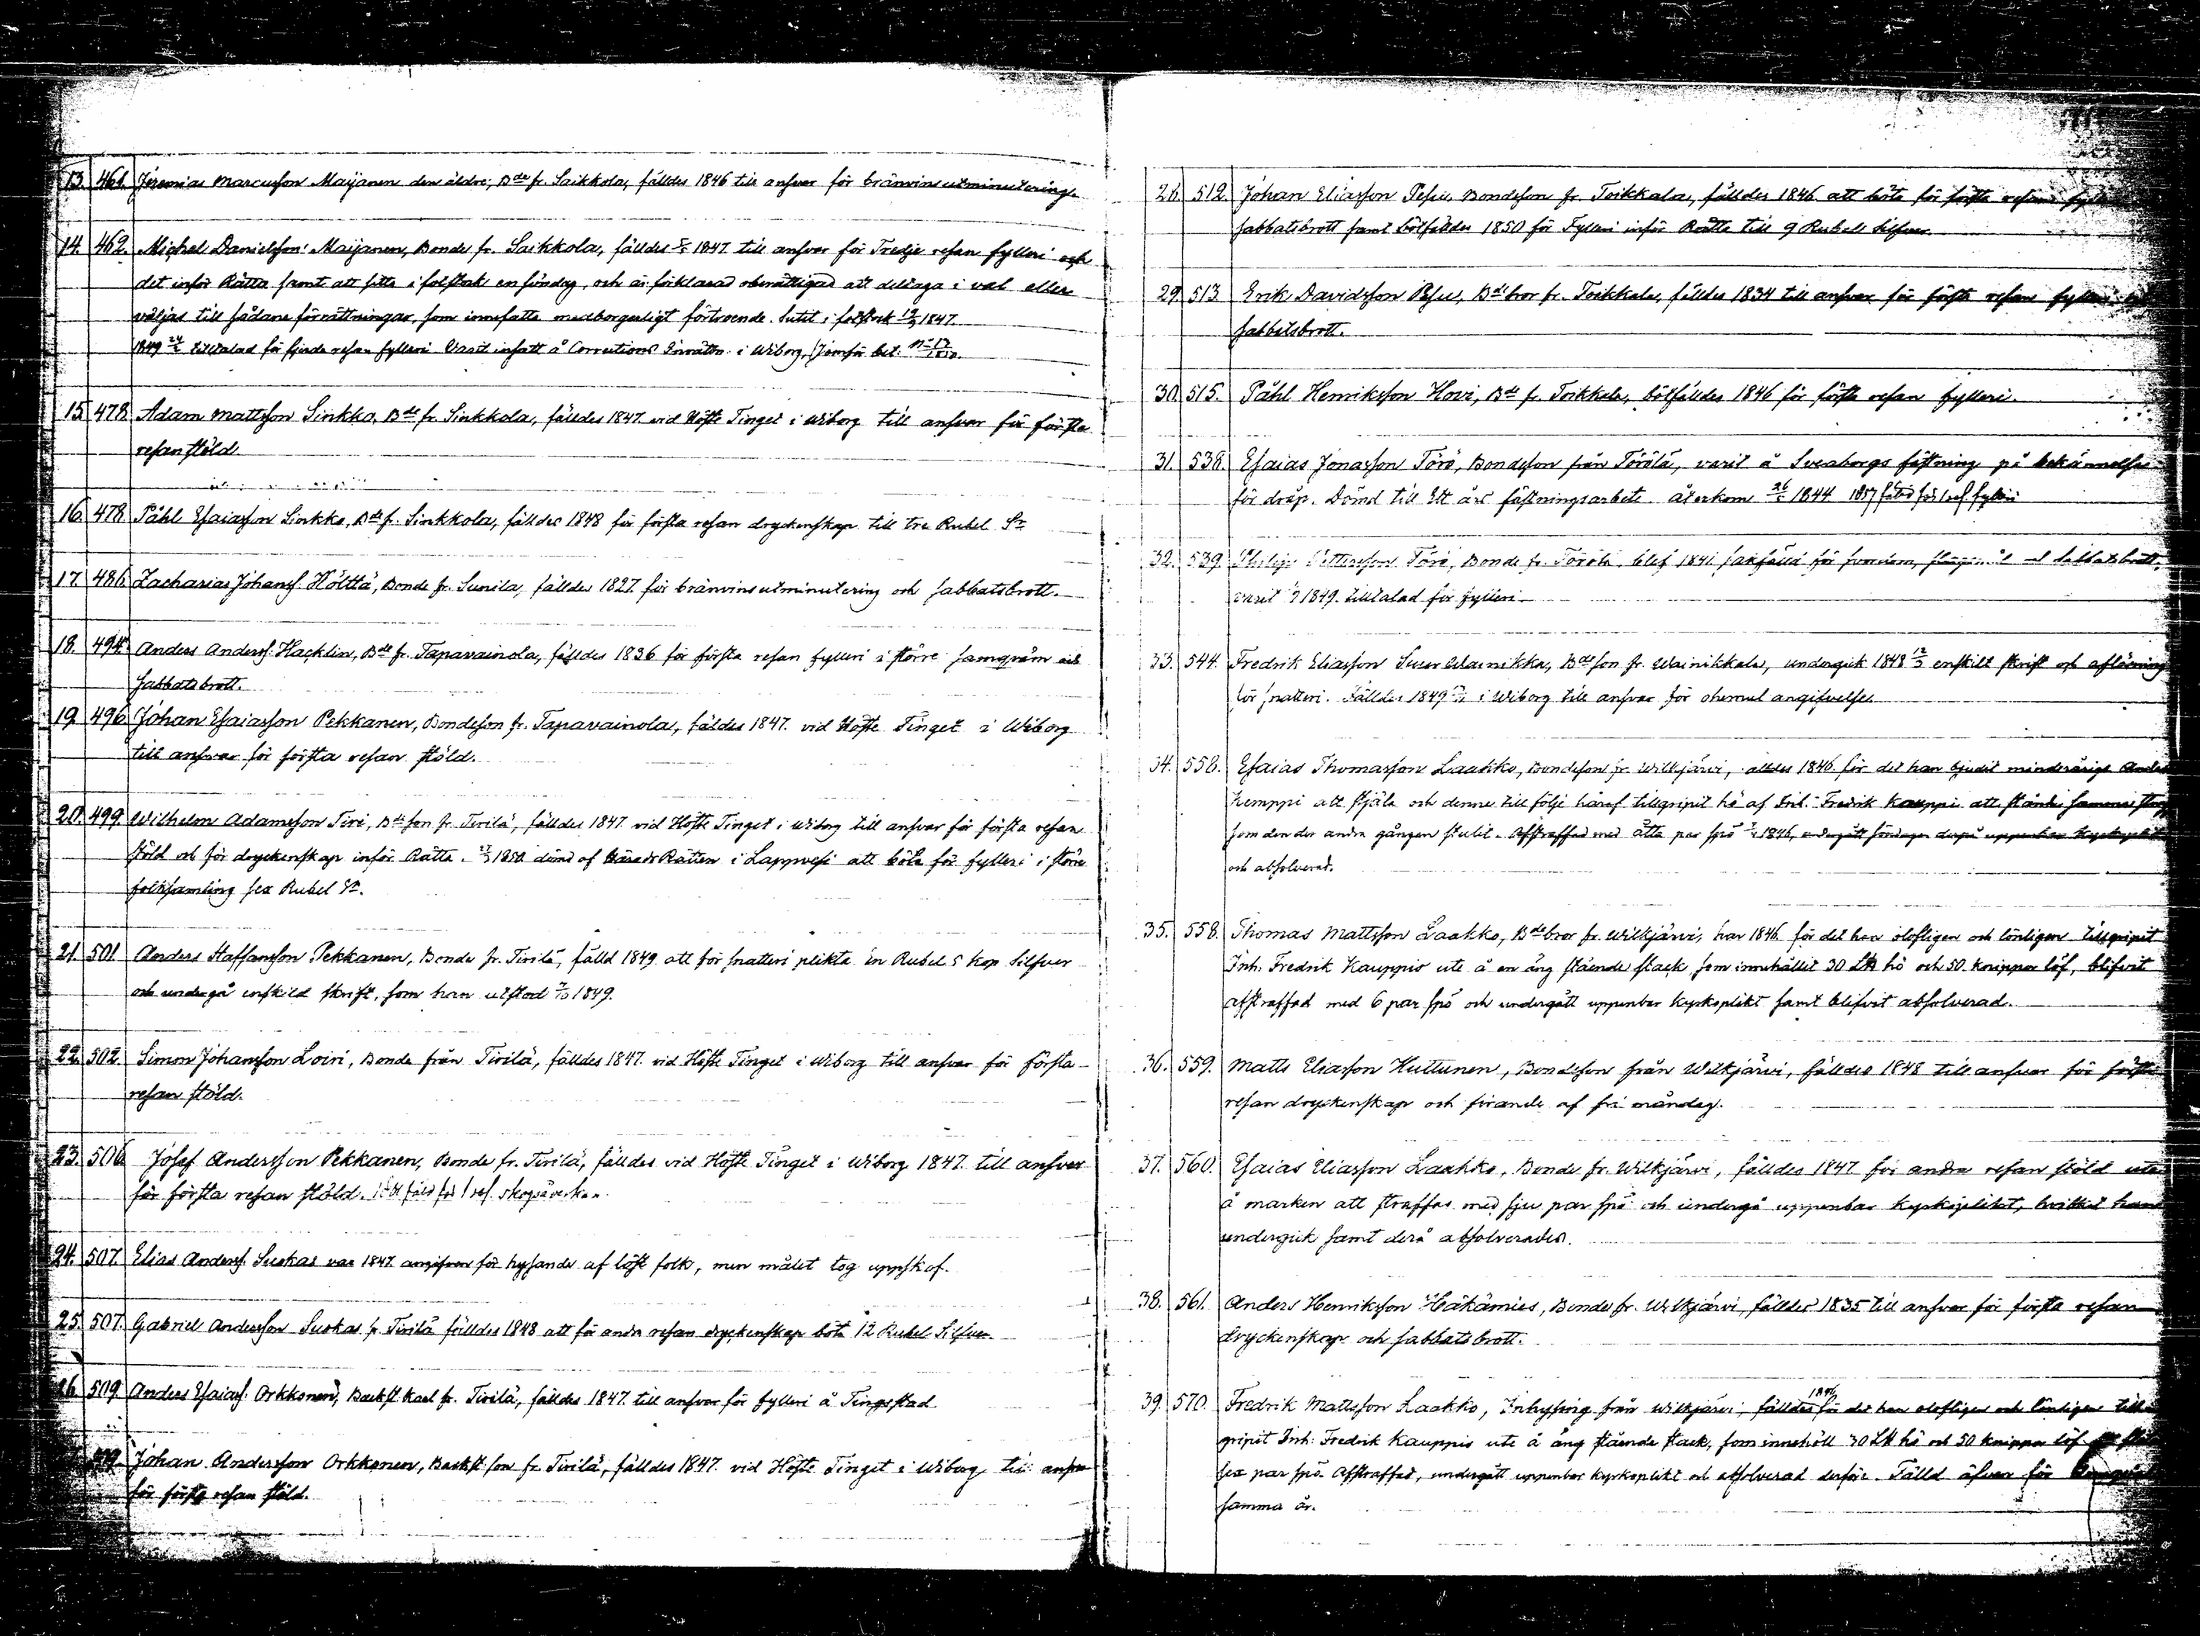 13. 461. Jeremias Marcusson Maijanen den äldre, Bde fr. Saikkola, fälldes 1846 till ansvar för bränvinsutminutering.
14. 462. Michel Danielsson Maijanen, Bonde fr. Saikkola, fälldes 1847 till ansvar för Tredje resan fylleri och
det inför Rätta samt att sitta i folstock en söndag, och är förklarad oberättigad att deltaga i val eller
väljas till sådane förrättningar, som innefatta medborgerligt förtroende. Sutit i folstock 1847.
1849 tilltalad för fjerde resan fylleri. Varit insatt å Corrections Inrättn. i Wiborg, Jemför bet.
15. 478. Adam Mattsson Sinkko, Bde fr. Sinkkola, fälldes 1847. vid Höste Tinget i Wiborg till ansvar för första
resan stöld.
16. 478. Påhl Esaiasson Sinkko, Bde fr. Sinkkola, fälldes 1848 för första resan dryckenskap till tre Rubel Sr
17. 486. Zacharias Johanss. Hölttä, Bonde fr. Sunila, fälldes 1827. för bränvinsutminutering och sabbatsbrott.
18. 494. Anders Anderss. Hacklin, Bde fr. Tapavainola, fälldes 1836 för första resan fylleri i större samqväm och
sabbatsbrott.
19. 496. Johan Esaiasson Pekkanen, Bondeson fr. Tapavainola, fäldes 1847. vid Höste Tinget i Wiborg
till ansvar för första resan stöld.
20. 499. Wilhelm Adamsson Tiri, Bdeson fr. Tirilä, fälldes 1847. vid Höste Tinget i Wiborg till ansvar för första resan
stöld och för dryckenskap inför Rätta. 1850 dömd af HäradsRätten i Lappvesi att böta för fylleri i större
folksamling sex Rubel Sr.
21. 501. Anders Staffansson Pekkanen, Bonde fr. Tirilä, fälld 1849 att för snatteri plikta en Rubel 5 kop Silfver
och undergå enskild skrift, som han utstod 1849.
22. 502. Simon Johansson Loiri, Bonde från Tirilä, fälldes 1847. vid Höste Tinget i Wiborg till ansvar för första
resan stöld.
23. 506. Josef Andersson Pekkanen, Bonde fr. Tirilä, fälldes vid Höste Tinget i Wiborg 1847. till ansvar
för första resan stöld. fäld för 1 res. skogsåverkan.
24. 507. Elias Anderss. Suokas var 1847. angifven för hysande af löst folk, men målet tog uppskof.
25. 507. Gabriel Andersson Suokas fr. Tirilä fälldes 1848 att för andra resan dryckenskap böta 12 Rubel Silfver
26. 509. Anders Esaiass. Orkkonen, Backst karl fr. Tirilä, fäldes 1847. till ansvar för fylleri å Tingsstad.
Johan Andersson Orkkonen, Backst son fr. Tirilä, fälldes 1847. vid Höste Tinget i Wiborg till ansvar
för första resan stöld.
28. 512. Johan Eliasson Pesu, Bondeson fr. Toikkala, fälldes 1846 att böta för första resan
sabbatsbrott samt bötfälldes 1850 för Fylleri inför Rätta till 9 Rubel Silfver.
29. 513. Erik Davidsson Pesu, Bdebror fr. Toikkala, fälldes 1834 till ansvar för första resan fylleri
sabbatsbrott.
30. 515. Påhl Henriksson Hovi, Bde fr. Toikkala, bötfälldes 1846 för första resan fylleri.
31. 538. Esaias Jonasson Törö, Bondeson från Törölä, varit å Sveaborgs fästning på bekännelse
för dråp. Dömd till Ett års fästningsarbete. återkom 1844. 1857 fäld för 1 res fylleri
32. 539. Philip Pettersson Törö, Bonde fr. Törölä, blef 1841 sakfälld för svordom, och sabbatsbrott,
varit 1849. tilltalad för fylleri.
33. 544. Fredrik Eliasson Suur Wainikka, Bdeson fr. Wainikkala, undergick 1848 enskilt skrift och aflösning
för snatteri. Fälldes 1849 i Wiborg till ansvar för ohemul angifvelse.
34. 558. Esaias Thomasson Laakko, Bondeson fr. Wilkjärvi, 1846 för det han bjudit minderårige Anders
Kemppi att stjäla och denne till följe häraf tillgripit hö af Inh. Fredrik Kauppi
som den der andra gången stulit. Afstraffad med åtta par spö 1846,
och absolverad.
35. 558. Thomas Mattsson Laakko, Bdebror fr. Wilkjärvi, har 1846 för det han olofligen och lönligen tillgripit
Inh. Fredrik Kauppis ute å en äng stående stack som innehållit 30 L℔ hö och 50 knippor löf, blifvit
afstraffad med 6 par spö och undergått uppenbar kyrkoplikt samt blifvit absolverad.
36. 559. Matts Eliasson Huttunen, Bondeson från Wilkjärvi, fälldes 1848 till ansvar för första
resan dryckenskap och firande af fri måndag.
37. 560. Esaias Eliasson Laakko, Bonde fr. Wilkjärvi, fälldes 1847 för andra resan stöld ute
å marken att straffas med sju par spö och undergå uppenbar kyrkoplikt, hvilket han
undergick samt derå absolverades.
38. 561. Anders Henriksson Häkämies, Bonde fr. Wilkjärvi, fälldes 1835 till ansvar för första resan
dryckenskap och sabbatsbrott.
39. 570. Fredrik Mattsson Laakko, Inhysing från Wilkjärvi, fälldes 1846 för det han olofligen och lönligen till
gripit Inh: Fredrik Kauppis ute å äng stående stack, som innehöll 30 L℔ hö och 50 knippor löf
sex par spö. Afstraffad, undergått uppenbar kyrkoplikt och absolverad derföre. Fälld äfven för
samma år.